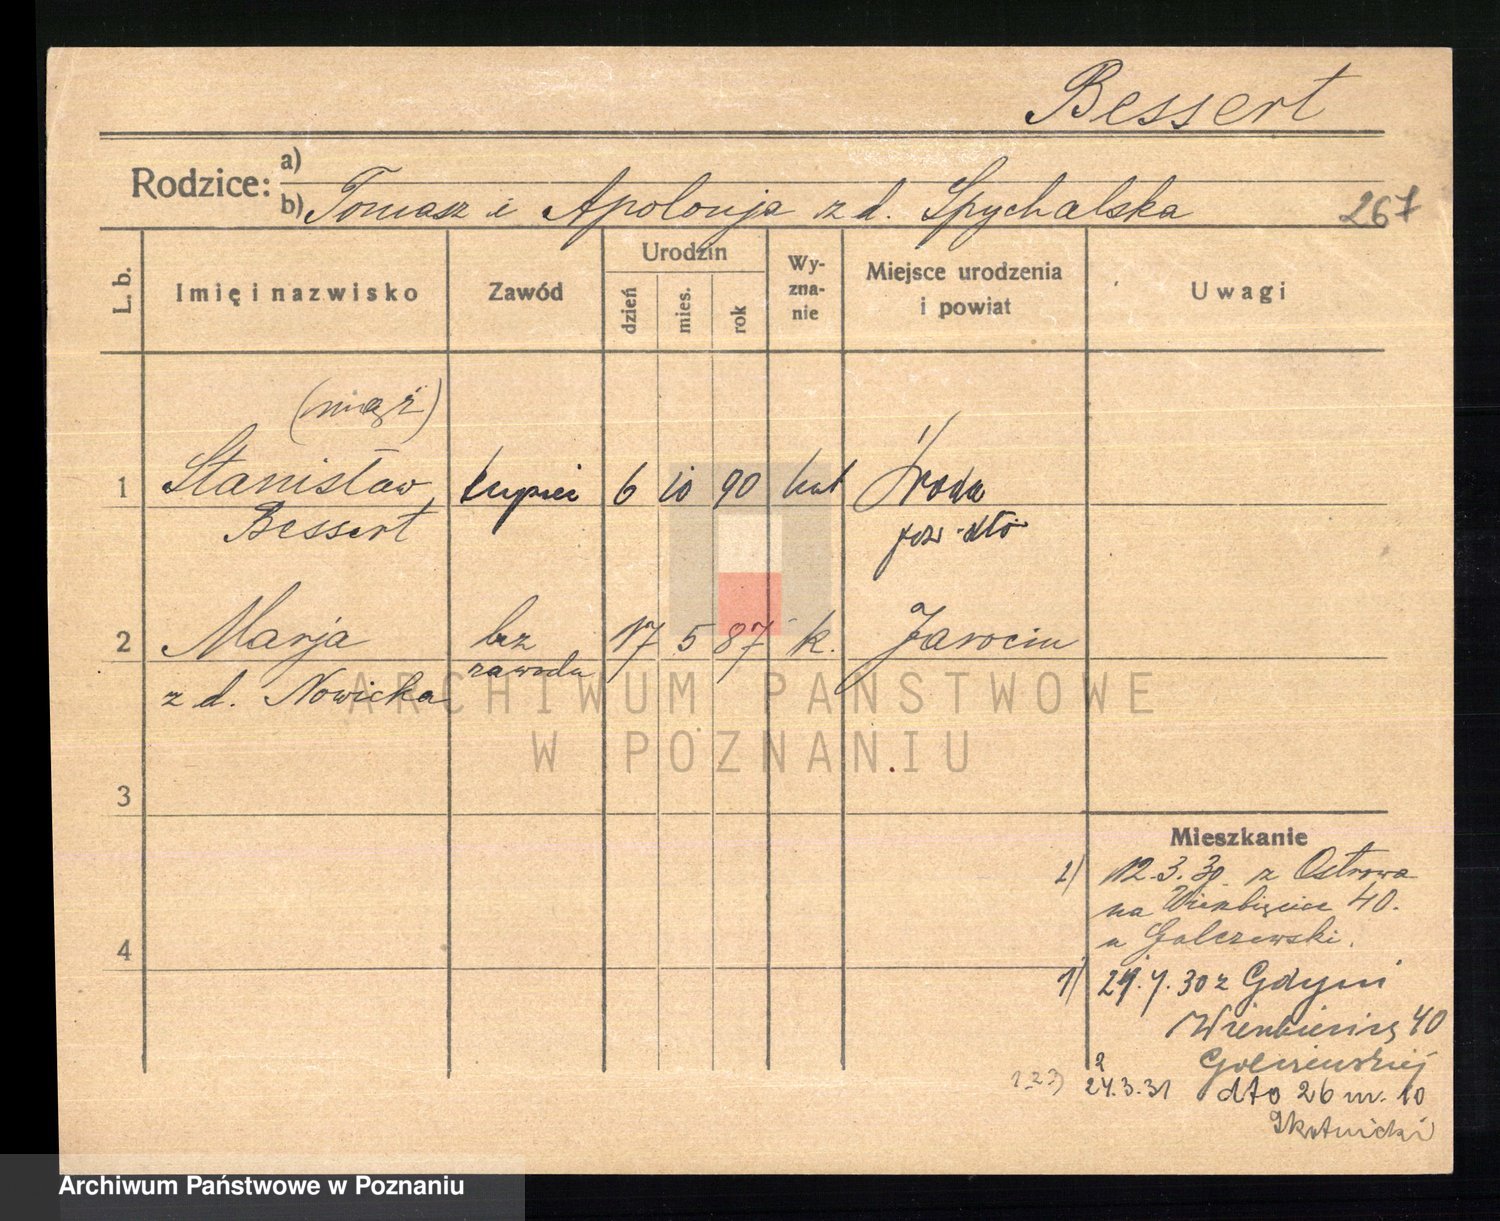 Bessert
Rodzice: a)
b) Tomasz i Apolonja z d. Spychalska 267
L. b. Imię i nazwisko Zawód Urodzin dzień mies. rok Wyznanie Miejsce urodzenia i powiat Uwagi
(mąż)
1 Stanisław kupiec 6 10 90 kat Środa
Bessert pow dto
2 Marja bez 17 5 87 k. Jarocin
z d. Nowicka zawodu
3
4
Mieszkanie
2) 12.3.30. z Ostrowa
na 40.
u Golczewski.
1) 30 z Gdyni
40
2
1 2 3) 24.3.31 dto 26 m. 10
ARCHIWUM PAŃSTWOWE
W POZNANIU
Archiwum Państwowe w Poznaniu